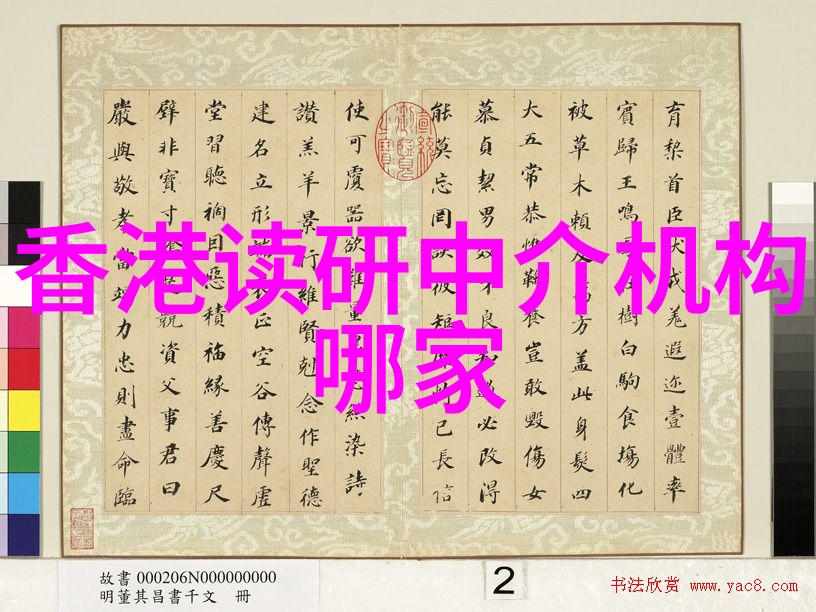 香港读研中介机构
哪家
育棃首臣伏戎羗遐迩壹體率
賓歸王鳴樹白駒食塲化
被草木賴及方盖此身髮四
大五常恭惟鞠養豈敢毀傷女
慕貞絜男效才良知過必改淂
能莫忘罔談彼短己長信
使可覆器欲難量絲染詩
讃羔羊景行維賢剋念作聖德
建名立形端表正空谷傳聲虛
堂習聽禍因惡積福緣善慶尺
璧非寶寸競資父事君曰
嚴與敬孝當竭力忠則盡命臨
故書 000206N000000000
明董其昌書千文 冊
2
书法欣赏 www.yac8.com